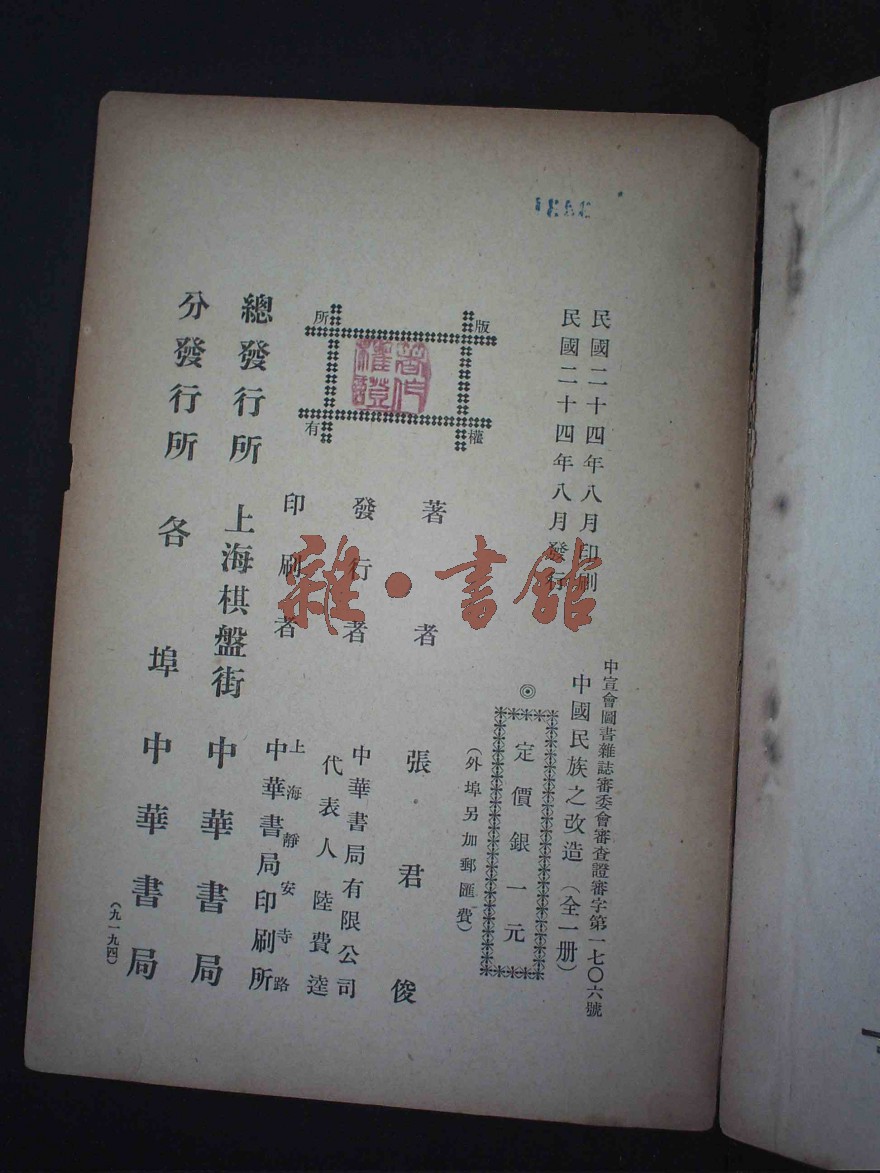 民國二十四年八月印刷
民國二十四年八月發行
中宣會圖書雜誌審委會審查證審字第一七〇六號
中國民族之改造（全一册）
◎定價銀一元
（外埠另加郵匯費）
版權所有
著作權證
著者 張君俊
發行者 中華書局有限公司
代表人 陸費逵
印刷者 上海靜安寺路
中華書局印刷所
總發行所 上海棋盤街 中華書局
分發行所 各埠 中華書局
（九一九四）
雜·書館